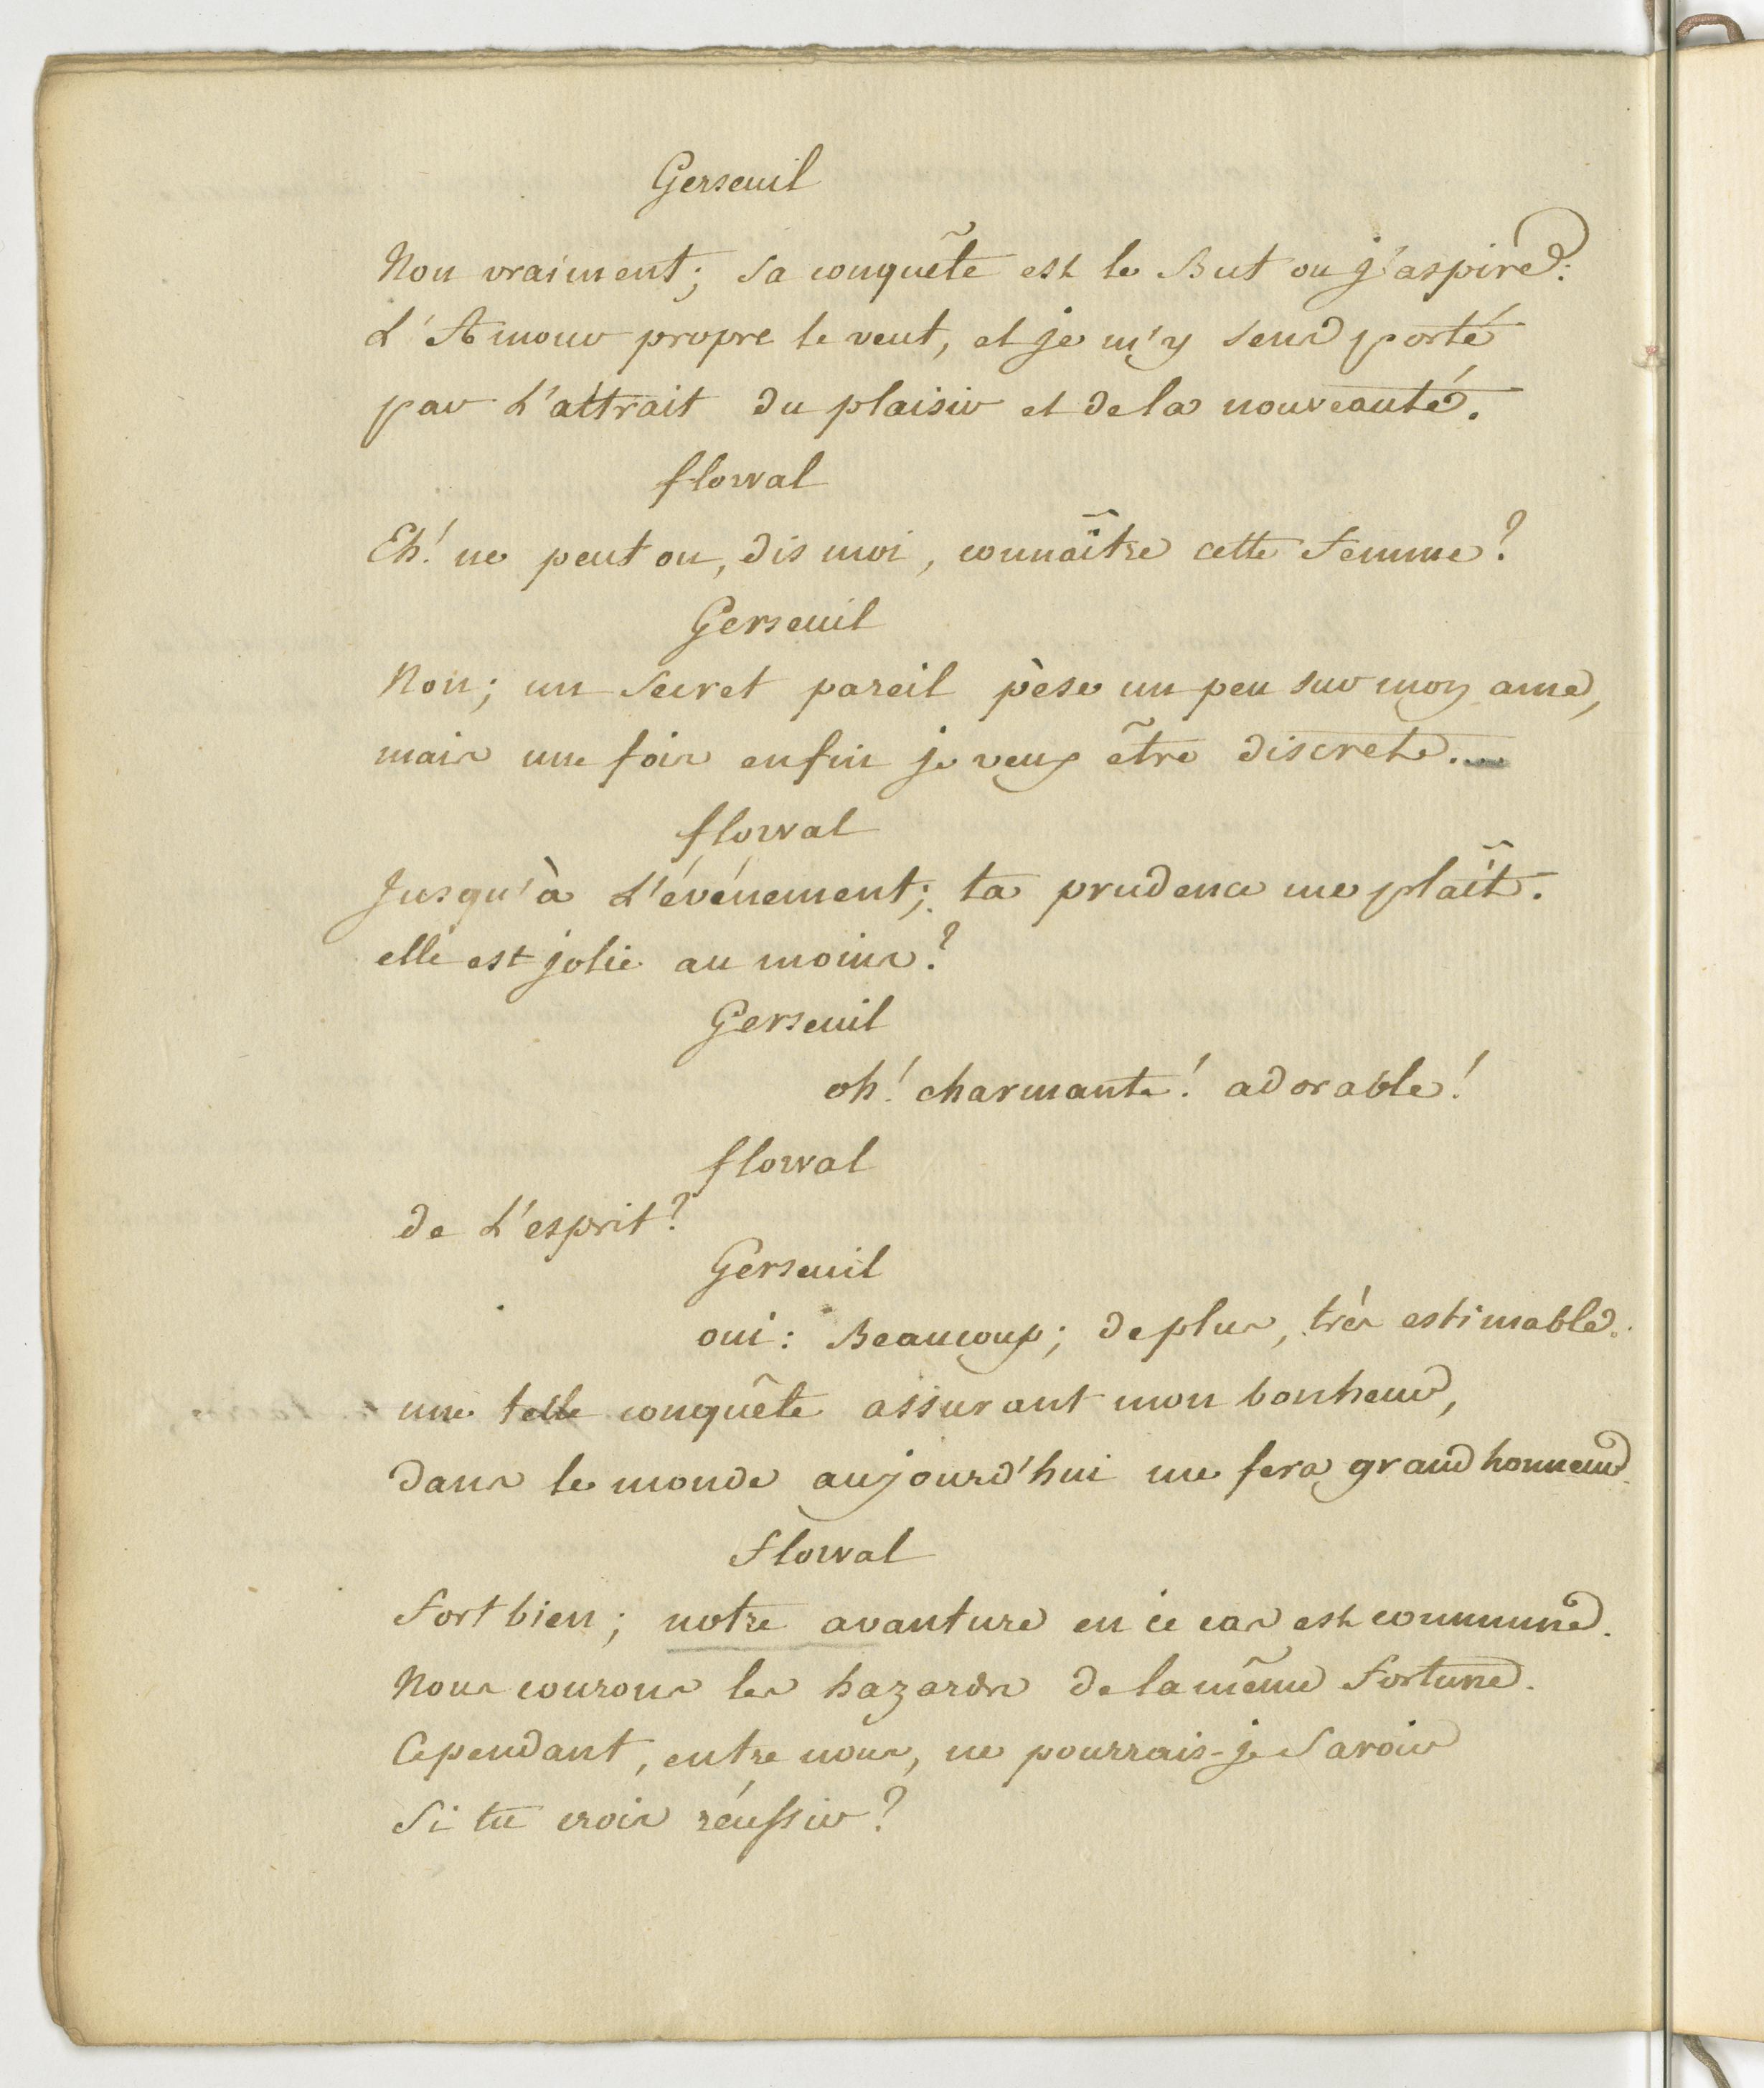 Gerseuil
Non vraiment; sa conquête est le But ou j'aspire:
L'Amour propre le veut, et je m'y sens porté
par L'attrait du plaisir et de la nouveauté.
florval
Eh! ne peut on, dis moi, connaître cette femme?
Gerseuil
Non; un secret pareil pèse un peu sur mon ame,
mais une fois enfin je veux être discret...
florval
Jusqu'à L'événement; ta prudence me plaît.
elle est jolie au moins?
Gerseuil
oh! charmante! adorable!
florval
de L'esprit?
Gerseuil
oui: Beaucoup; de plus, très estimable.
une telle conquête assurant mon bonheur,
dans le monde aujourd'hui me fera grand honneur.
florval
fort bien; notre avanture en ce cas est commune.
Nous courons les hazards de la même fortune.
Cependant, entre nous, ne pourrais-je savoir
si tu crois réussir?